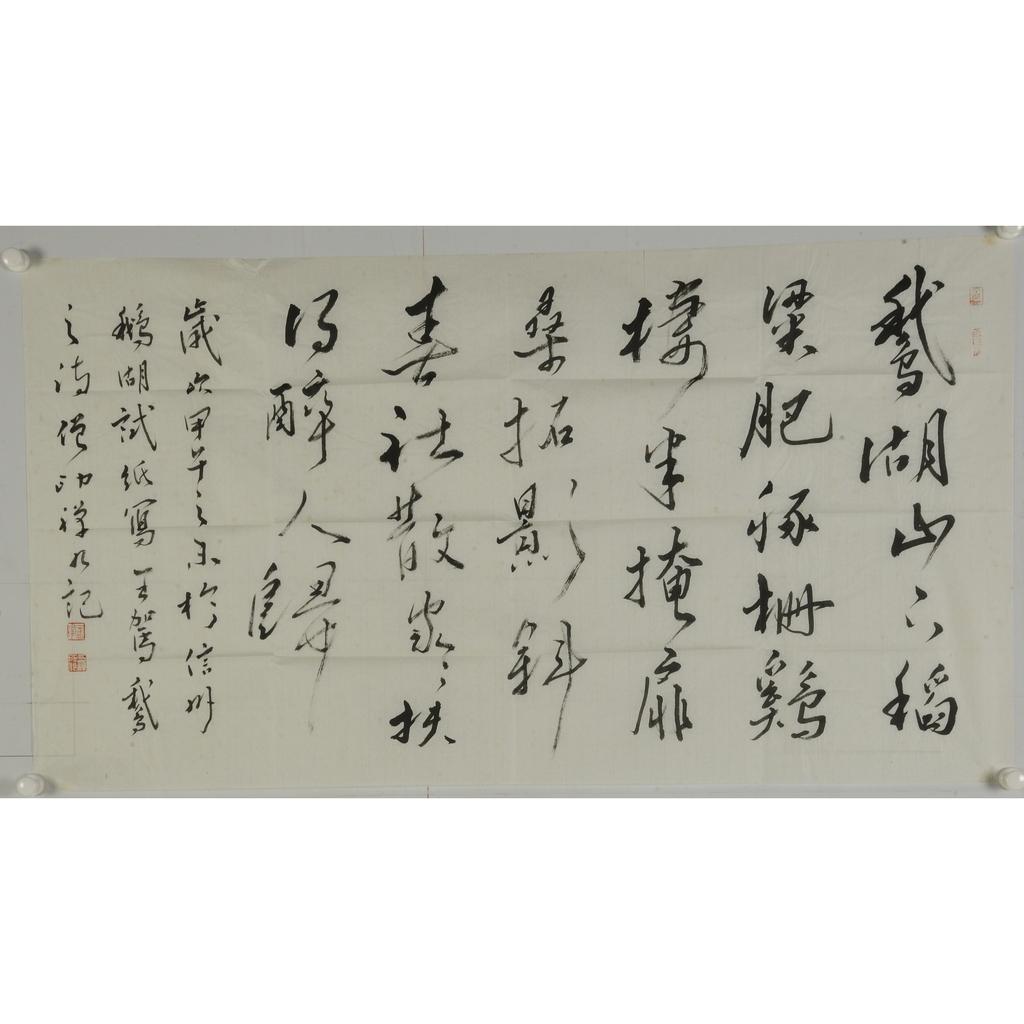 鵝湖山下稻
粱肥豚柵鷄
棲半掩扉
桑拓影斜
春社散家々扶
得醉人歸
歲次甲午之末於信州
鵝湖試紙寫王駕鵝
之詩僧印禪又記